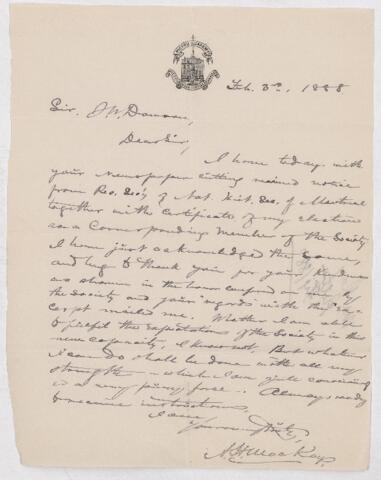 Feb. 3rd, 1888
Sir J. W. Dawson,
Dear Sir,
I have today with
your Newspaper cutting received notice
from Rec. Sec'y of Nat. Hist. Soc. of Montreal
together with certificate of my election
as a Corresponding Member of the Society
I have just acknowledged the same,
and beg to thank you for your kindness
as shown in the honor conferred by
the Society and your regards with the
mailed me. Whether I am able
to fulfil the expectations of the Society in this
new capacity, I know not. But whatever
I can do shall be done with all my
strength – which I am quite conscious
is a very puny force. Always ready
to receive instructions,
I am
Yours very truly,
A. H. MacKay.